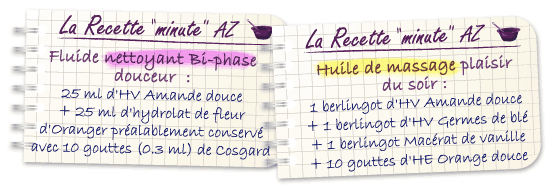 La Recette "minute" AZ
Fluide nettoyant Bi-phase
douceur :
25 ml d'HV Amande douce
+ 25 ml d'hydrolat de fleur
d'Oranger préalablement conservé
avec 10 gouttes (0.3 ml) de Cosgard
La Recette "minute" AZ
Huile de massage plaisir
du soir :
1 berlingot d'HV Amande douce
+ 1 berlingot d'HV Germes de blé
+ 1 berlingot Macérat de vanille
+ 10 gouttes d'HE Orange douce